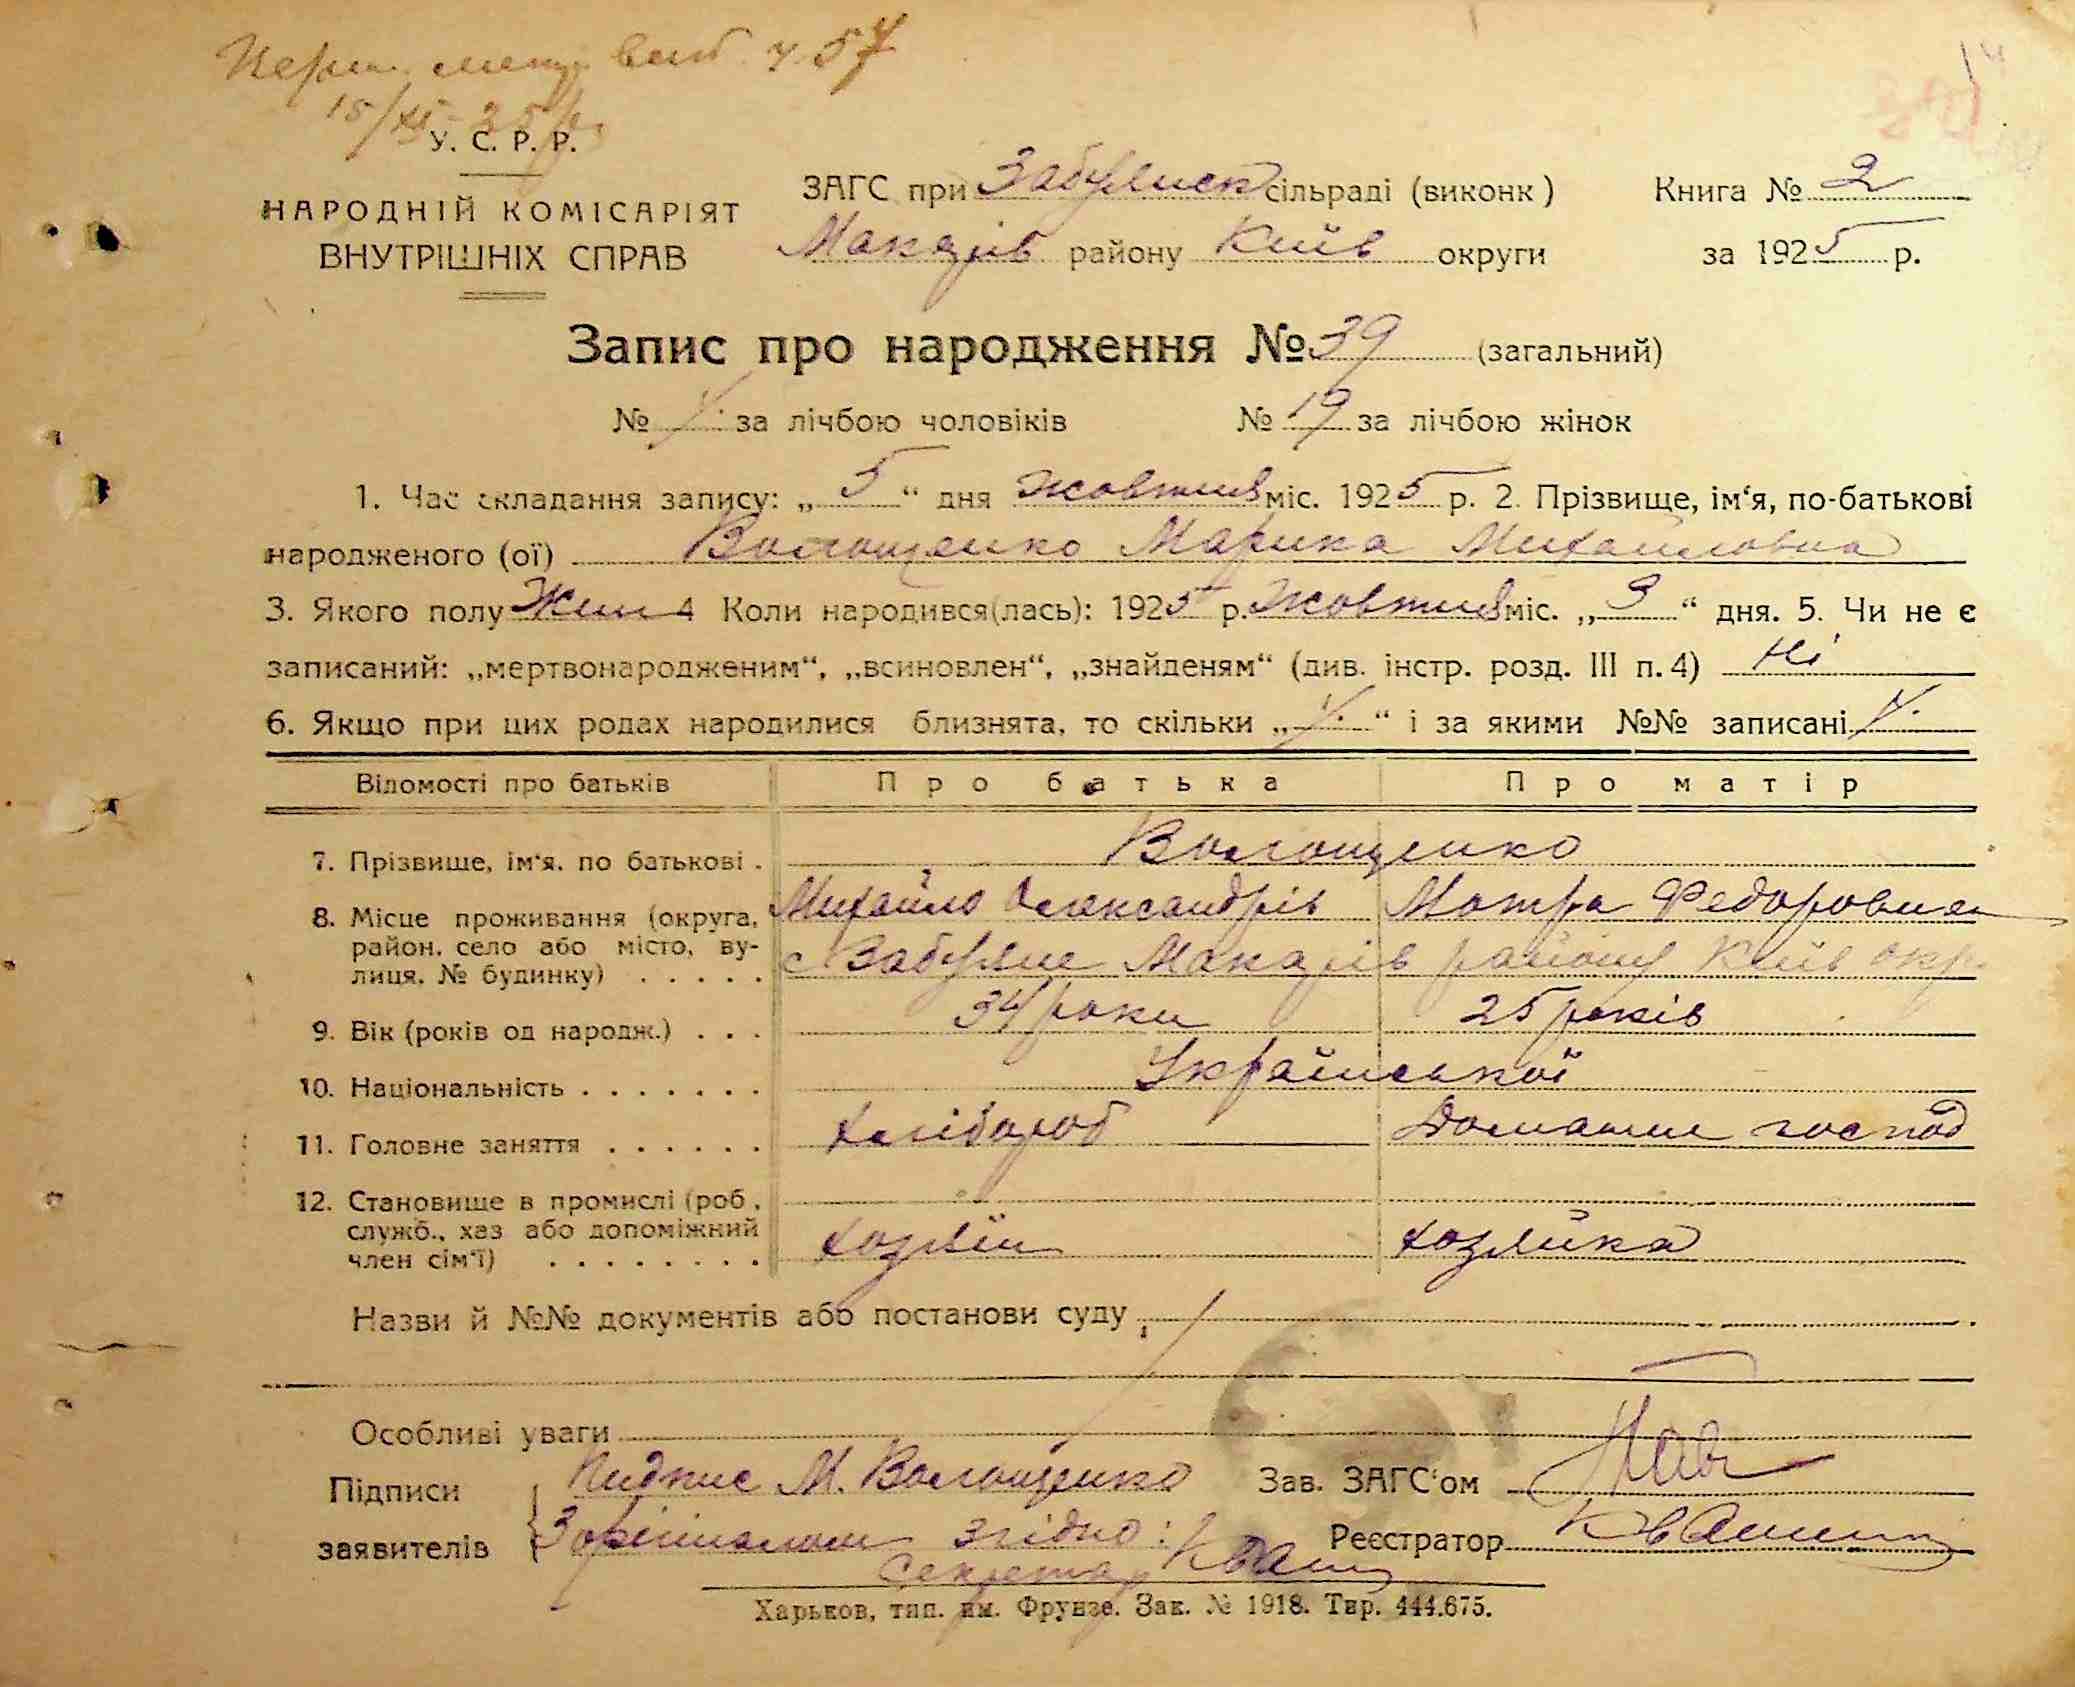 ч. 57
15/XI-25 р.
У. С. Р. Р.
НАРОДНІЙ КОМІСАРІЯТ
ВНУТРІШНІХ СПРАВ
ЗАГС при Забуянск сільраді (виконк)
Макарів району Київ округи
Книга № 2
за 1925 р.
Запис про народження № 39 (загальний)
№ за лічбою чоловіків № 19 за лічбою жінок
1. Час складання запису: „5“ дня жовтня міс. 1925 р. 2. Прізвище, ім‘я, по-батькові
народженого (ої) Волощенко Марика Михайловна
3. Якого полу Жин 4 Коли народився(лась): 1925 р. Жовтня міс. „3“ дня. 5. Чи не є
записаний: „мертвонародженим“, „всиновлен“, „знайденям“ (див. інстр. розд. III п. 4) Ні
6. Якщо при цих родах народилися близнята, то скільки „ “ і за якими №№ записані
Відомості про батьків Про батька Про матір
7. Прізвище, ім‘я, по батькові . Волощенко
Михайло Олександрів Мотря Федоровна
8. Місце проживання (округа,
район, село або місто, ву-
лиця, № будинку) . . . . . с Забуяне Макарів району Київ окр.
9. Вік (років од народж.) . . . 34 роки 25 років
10. Національність . . . . . . . Української
11. Головне заняття . . . . . . Хлібороб Домашне господ
12. Становище в промислі (роб.,
служб., хаз або допоміжний
член сім‘ї) . . . . . . . . Хозяїн Хозяйка
Назви й №№ документів або постанови суду
Особливі уваги
Підписи
заявителів
Пидпис М. Волощенко
З орігіналом згідно:
Секретар Кваш
Зав. ЗАГС‘ом
Реєстратор
Харьков, тип. им. Фрунзе. Зак. № 1918. Тир. 444.675.